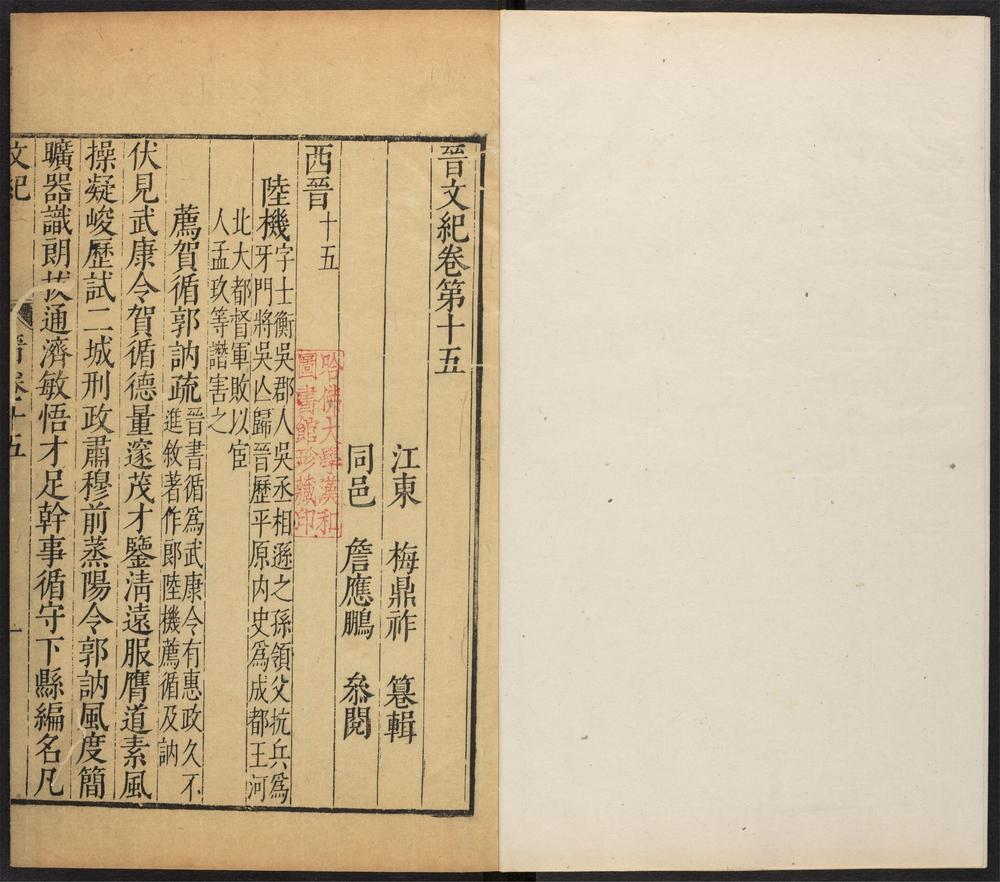 晉文紀卷第十五
江東 梅鼎祚 篹輯
同邑 詹應鵬 叅閱
西晉十五
陸機字士衡吳郡人吳丞相遜之孫領父抗兵爲
牙門將吳亾歸晉歷平原內史爲成都王河
北大都督軍敗以宦
人孟玖等譖害之
薦賀循郭訥疏晉書循爲武康令有惠政久不
進敘著作郞陸機薦循及訥
伏見武康令賀循德量邃茂才鑒淸遠服膺道素風
操凝峻歷試二城刑政肅穆前蒸陽令郭訥風度簡
曠器識朗拔通濟敏悟才足幹事循守下縣編名凡
文紀
晉卷十五
一
哈佛大學漢和
圖書館珍藏印